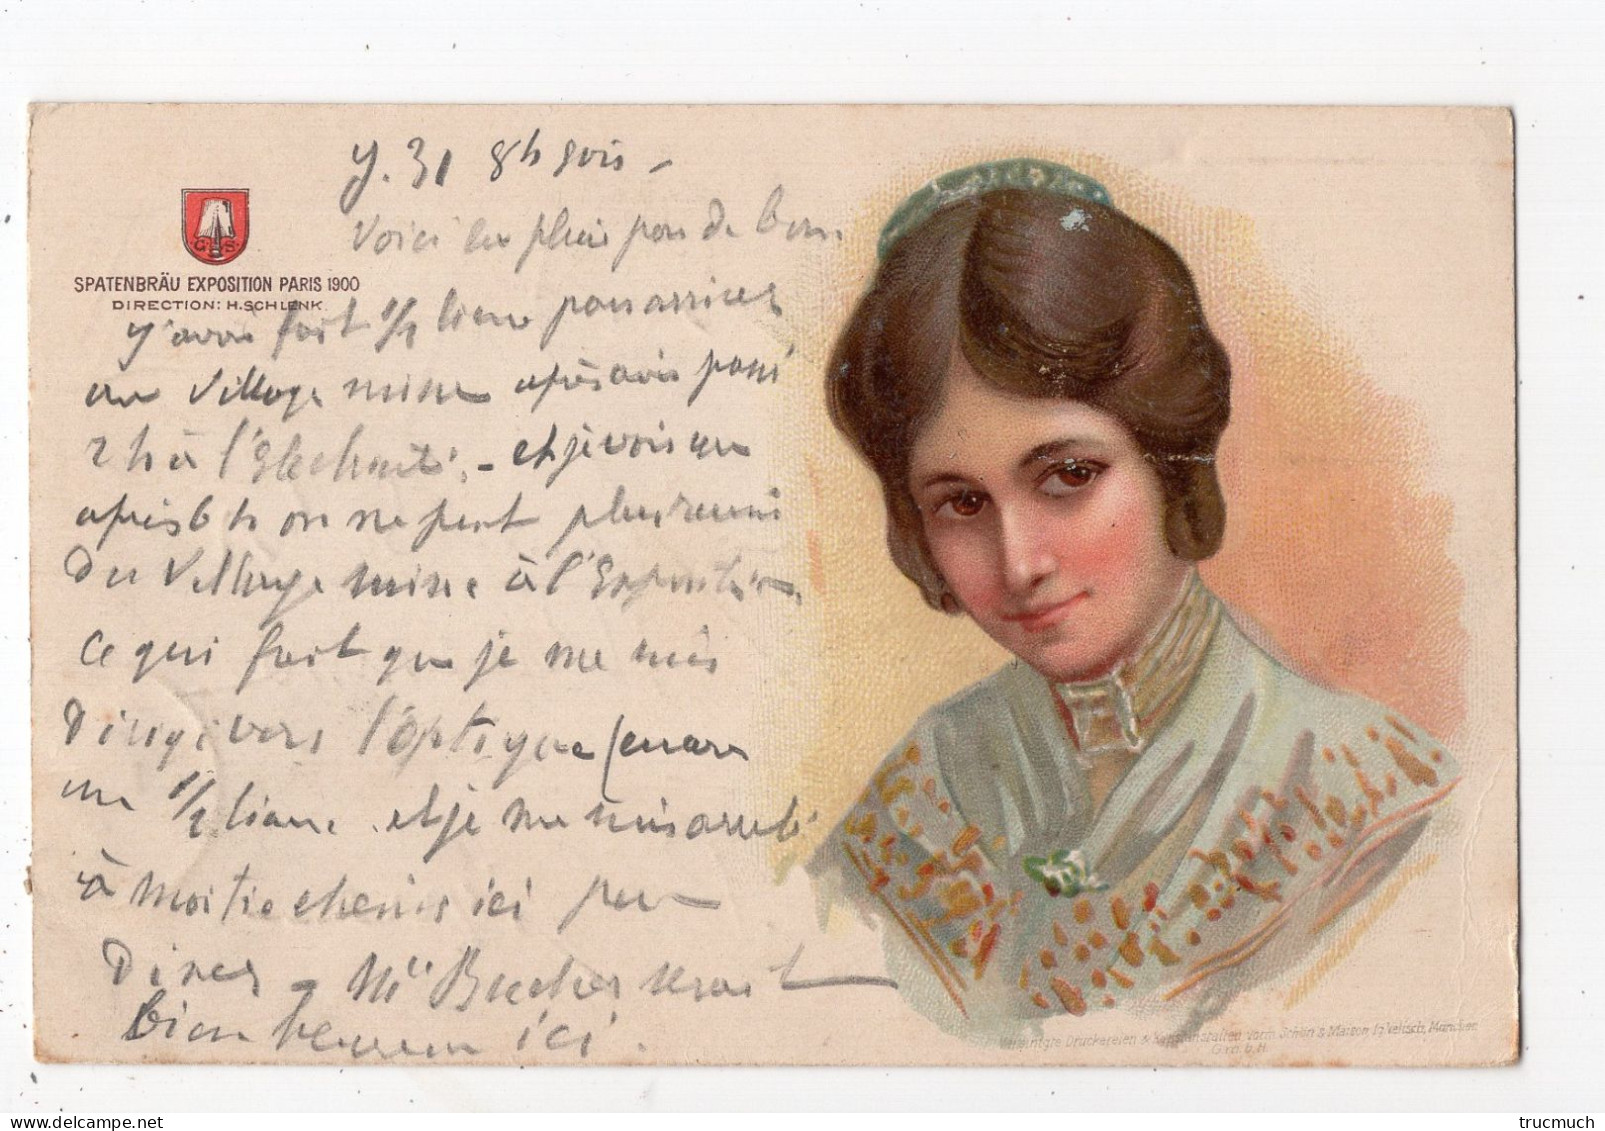 J. 31 8h soir -
Voici en plein pays de bons
G. S.
SPATENBRÄU EXPOSITION PARIS 1900
DIRECTION: H. SCHLENK.
J'avais fait 1/2 lieue pour arriver
au Village suisse après avoir passé
2 h à l'Electricité. - et je vois que
après 6 h on ne peut plus
du Village suisse à l'Exposition
ce qui fait que je me suis
dirigé vers l'Optique (encore
une 1/2 lieue. et je me suis arrêté
à moitié chemin ici pour
Diner - Mr Bucher serait
bien heureux ici.
Vereinigte Druckereien & Kunstanstalten vorm. Schön & Maison, München
G.m.b.H.
trucmuch